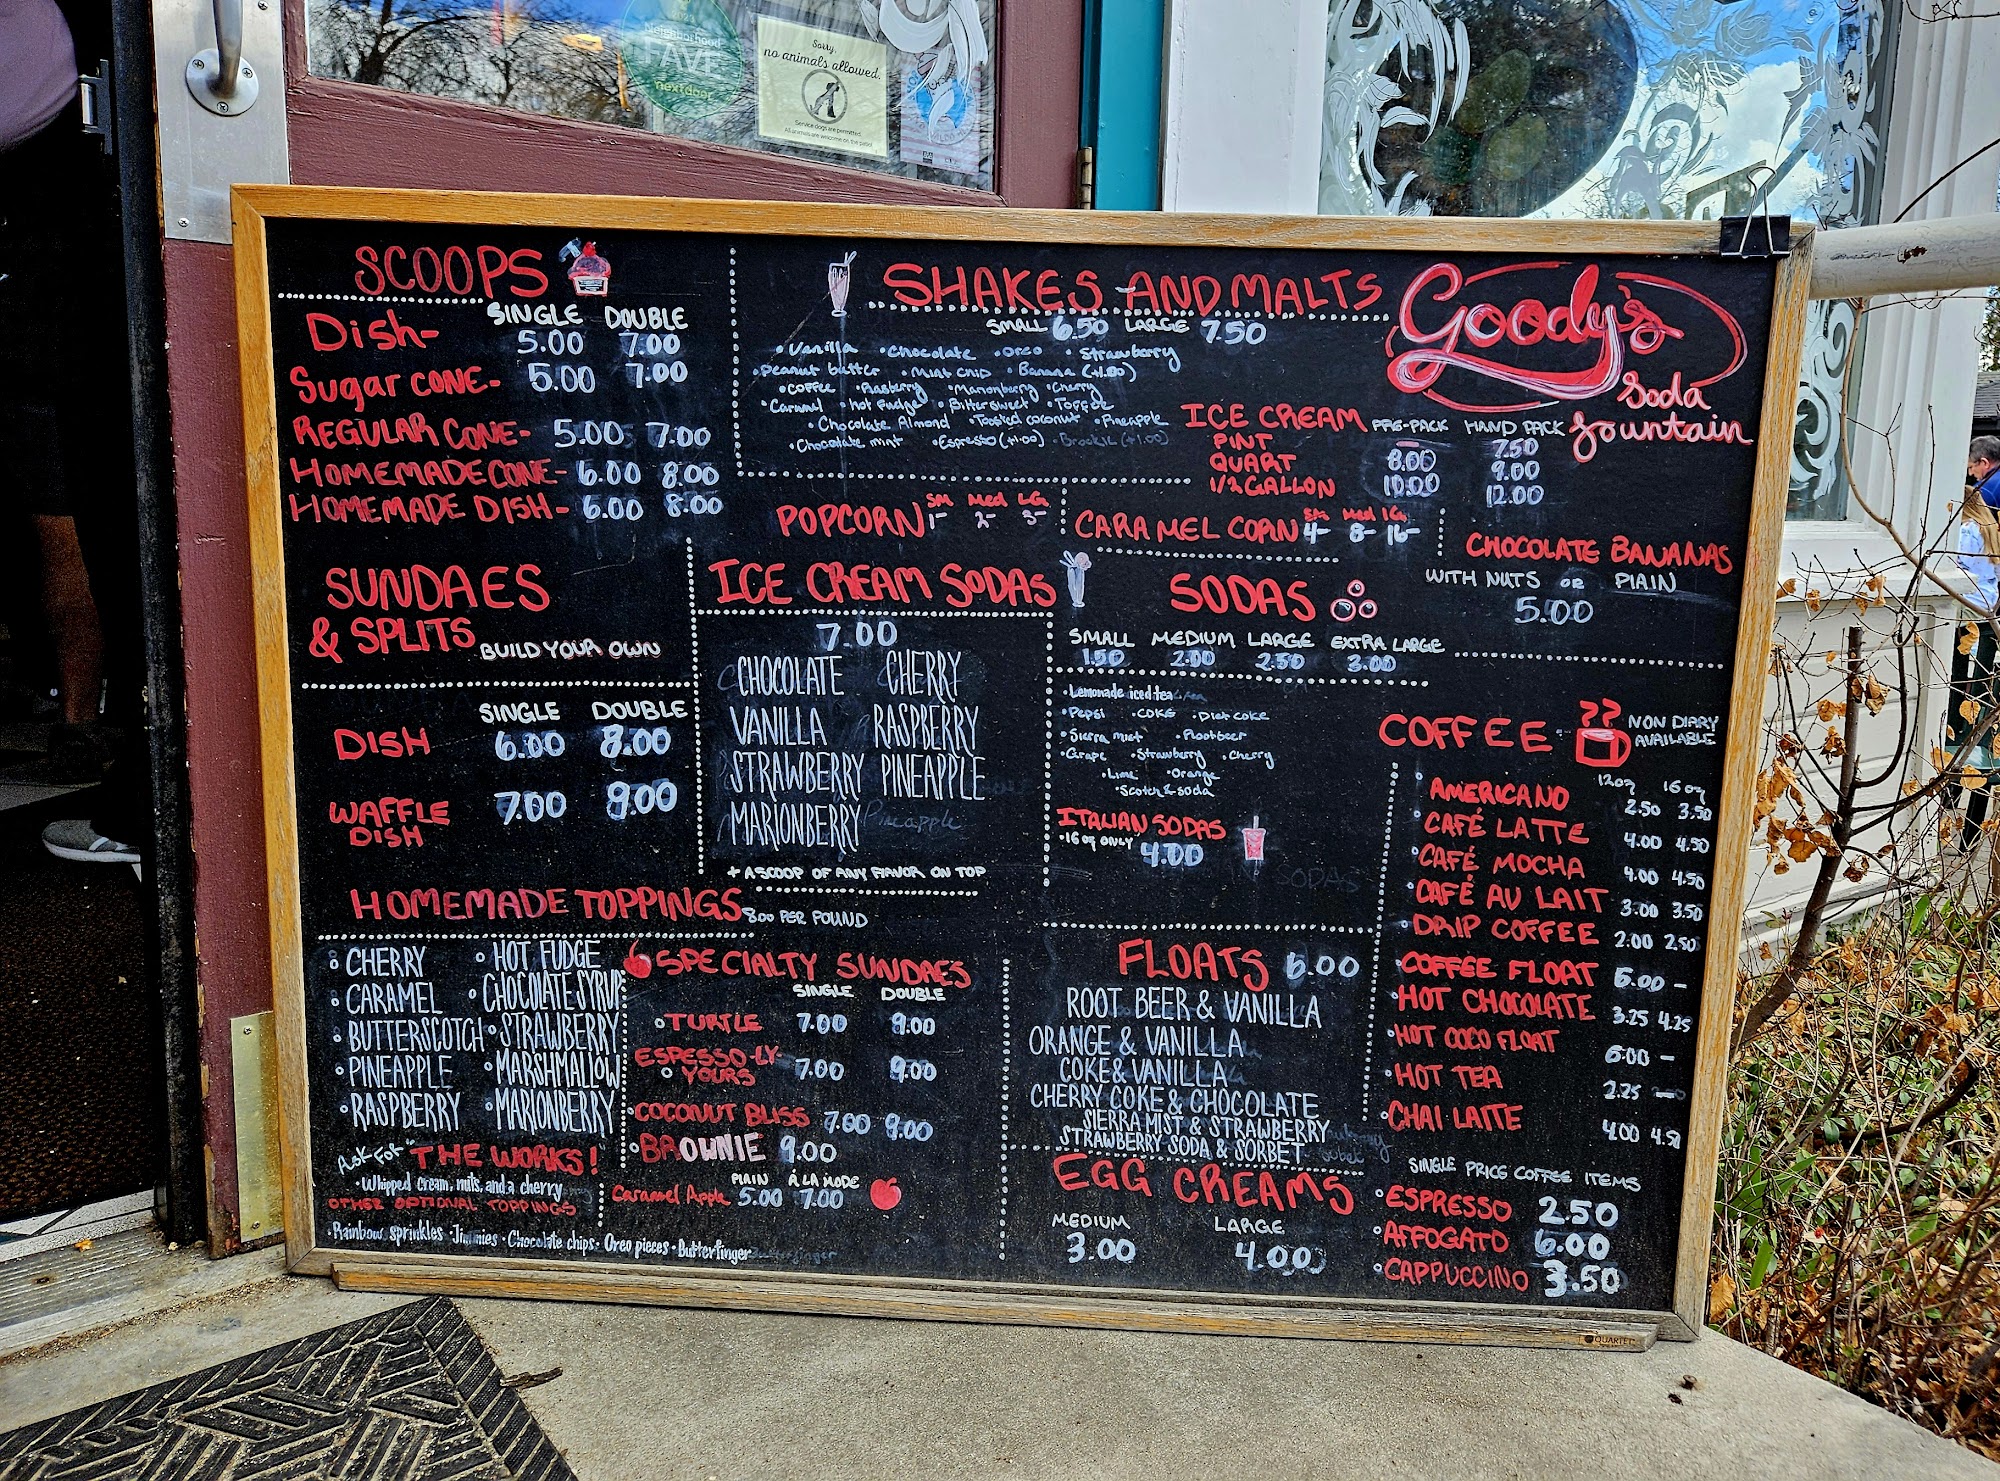 Neighborhood
FAVE
nextdoor
Sorry,
no animals allowed.
Service dogs are permitted.
All animals are welcome on the patio!
SCOOPS
SINGLE DOUBLE
Dish- 5.00 7.00
Sugar CONE- 5.00 7.00
REGULAR CONE- 5.00 7.00
HOMEMADE CONE- 6.00 8.00
HOMEMADE DISH- 6.00 8.00
SHAKES AND MALTS
SMALL 6.50 LARGE 7.50
• Vanilla • Chocolate • Oreo • Strawberry
• Peanut butter • Mint chip • Banana (+1.00)
• Coffee • Rasberry • Marionberry • Cherry
• Caramel • hot fudge • Bittersweet • Toffee
• Chocolate Almond • Toasted coconut • Pineapple
• Chocolate mint • Espresso (+1.00) (+1.00)
Goody's
Soda
fountain
ICE CREAM PRE-PACK HAND PACK
PINT 7.50
QUART 8.00 9.00
1/2 GALLON 10.00 12.00
POPCORN SM 1- Med 2- LG 3-
CARAMEL CORN Sm 4- Med 8- LG 16-
CHOCOLATE BANANAS
WITH NUTS OR PLAIN
5.00
SUNDAES
& SPLITS BUILD YOUR OWN
SINGLE DOUBLE
DISH 6.00 8.00
WAFFLE
DISH 7.00 9.00
ICE CREAM SODAS
7.00
CHOCOLATE CHERRY
VANILLA RASPBERRY
STRAWBERRY PINEAPPLE
MARIONBERRY
+ A SCOOP OF ANY FLAVOR ON TOP
SODAS
SMALL MEDIUM LARGE EXTRA LARGE
1.50 2.00 2.50 3.00
• Lemonade iced tea
• Pepsi • COKE • Diet coke
• Sierra mist • Rootbeer
• Grape • Strawberry • Cherry
• Lime • Orange
• Scotch & soda
ITALIAN SODAS
• 16 oz ONLY 4.00
COFFEE NON DIARY
AVAILABLE
12oz 16oz
• AMERICANO 2.50 3.50
• CAFÉ LATTE 4.00 4.50
• CAFÉ MOCHA 4.00 4.50
• CAFÉ AU LAIT 3.00 3.50
• DRIP COFFEE 2.00 2.50
• COFFEE FLOAT 6.00 -
• HOT CHOCOLATE 3.25 4.25
• HOT COCO FLOAT 6.00 -
• HOT TEA 2.25
• CHAI LATTE 4.00 4.50
SINGLE PRICE COFFEE ITEMS
• ESPRESSO 2.50
• AFFOGATO 6.00
• CAPPUCCINO 3.50
HOMEMADE TOPPINGS 8.00 PER POUND
• CHERRY • HOT FUDGE
• CARAMEL • CHOCOLATE SYRUP
• BUTTERSCOTCH • STRAWBERRY
• PINEAPPLE • MARSHMALLOW
• RASPBERRY • MARIONBERRY
Ask For "THE WORKS!
• Whipped cream, nuts, and a cherry
OTHER OPTIONAL TOPPINGS
• Rainbow sprinkles • Jimmies • Chocolate chips • Oreo pieces • Butterfinger
SPECIALTY SUNDAES
SINGLE DOUBLE
• TURTLE 7.00 9.00
ESPRESSO-LY
• YOURS 7.00 9.00
• COCONUT BLISS 7.00 9.00
• BROWNIE 9.00
PLAIN Á LA MODE
Caramel Apple 5.00 7.00
FLOATS 6.00
ROOT BEER & VANILLA
ORANGE & VANILLA
COKE & VANILLA
CHERRY COKE & CHOCOLATE
SIERRA MIST & STRAWBERRY
STRAWBERRY SODA & SORBET
EGG CREAMS
MEDIUM LARGE
3.00 4.00
QUARTET